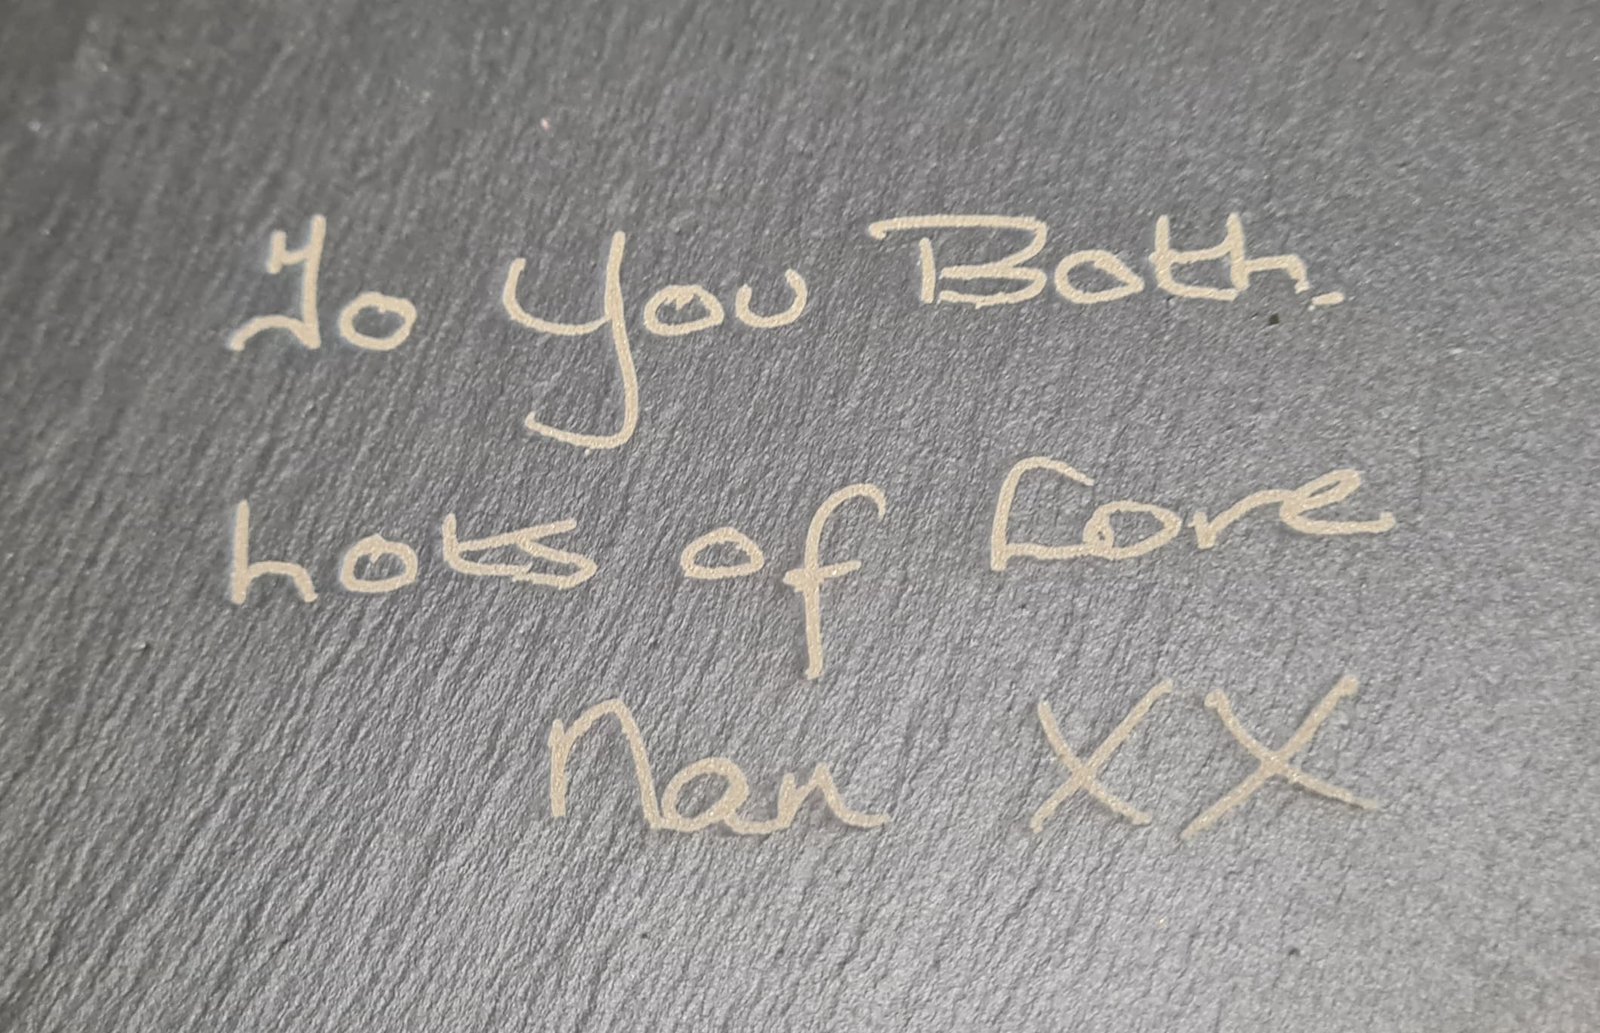 To You Both.
Lots of Love
Nan XX